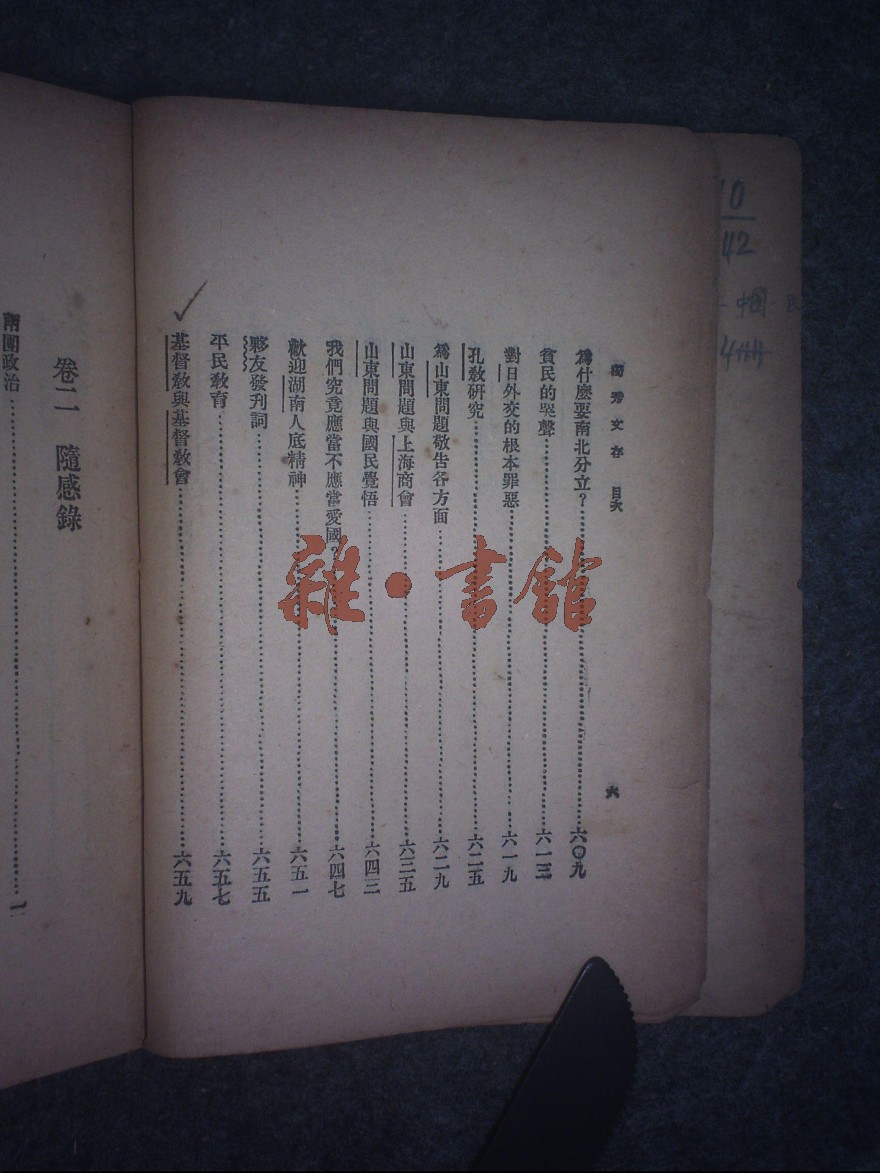 獨秀文存 目次 六
為什麼要南北分立？六〇九
貧民的哭聲六一三
對日外交的根本罪惡六一九
孔教研究六二五
為山東問題敬告各方面六二九
山東問題與上海商會六三五
山東問題與國民覺悟六四三
我們究竟應當不應當愛國？六四七
歡迎湖南人底精神六五一
夥友發刊詞六五五
平民教育六五七
基督教與基督教會六五九
卷二 隨感錄
兩團政治一
雜·書館
10
42
中國
4冊